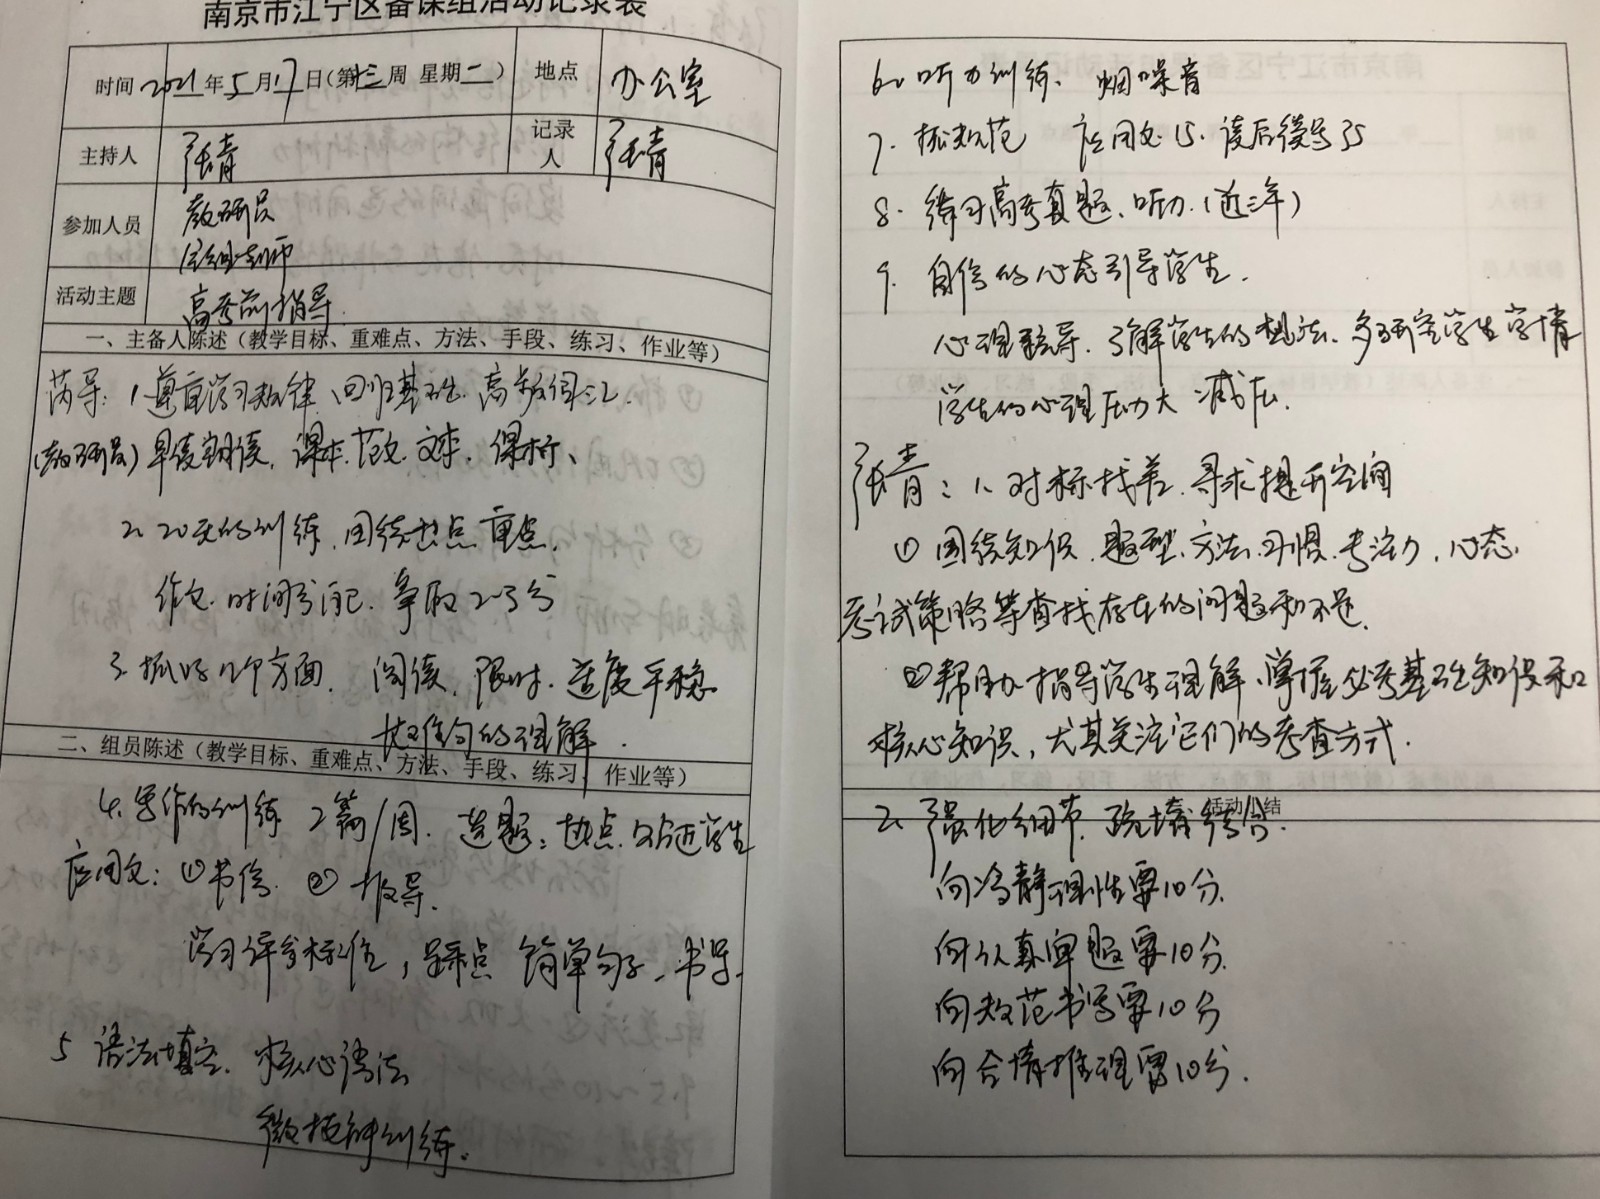 南京市江宁区备课组活动记录表
时间 2021年5月17日(第十三周 星期二) 地点 办公室
主持人 张青 记录人 张青
参加人员 教研员
全组老师
活动主题 高考前指导
一、主备人陈述(教学目标、重难点、方法、手段、练习、作业等)
芮导:1 遵重学习规律 回归基础. 高频词汇.
(教研员)早读朗读, 课本. 范文. 文本. 课标、
2. 20天的训练, 围绕热点 重点.
作文. 时间分配. 争取2-3分
3. 抓好几个方面. 阅读, 限时. 适度平稳.
长难句的理解.
二、组员陈述(教学目标、重难点、方法、手段、练习、作业等)
4. 写作的训练 2篇/周. 选题:热点. 贴近学生
应用文:①书信. ②报导.
学习评分标准,踩点 简单句子. 书写.
5 语法填空. 核心语法
微技能训练.
6. 听力训练. 噪音
7. 规范 应用文15. 读后续写25
8. 练习高考真题、听力.(近三年)
9. 自信的心态引导学生.
心理疏导. 了解学生的想法. 多研究学生学情
学生的心理压力大 减压.
张青:1、对标找差. 寻求提升空间
① 围绕知识. 题型. 方法. 习惯. 专注力. 心态.
考试策略等查找存在的问题和不足.
②帮助指导学生理解、掌握必考基础知识和
核心知识,尤其关注它们的考查方式.
活动小结
2. 强化细节. 得分.
向冷静理性要10分.
向认真审题要10分.
向规范书写要10分
向合情推理要10分.